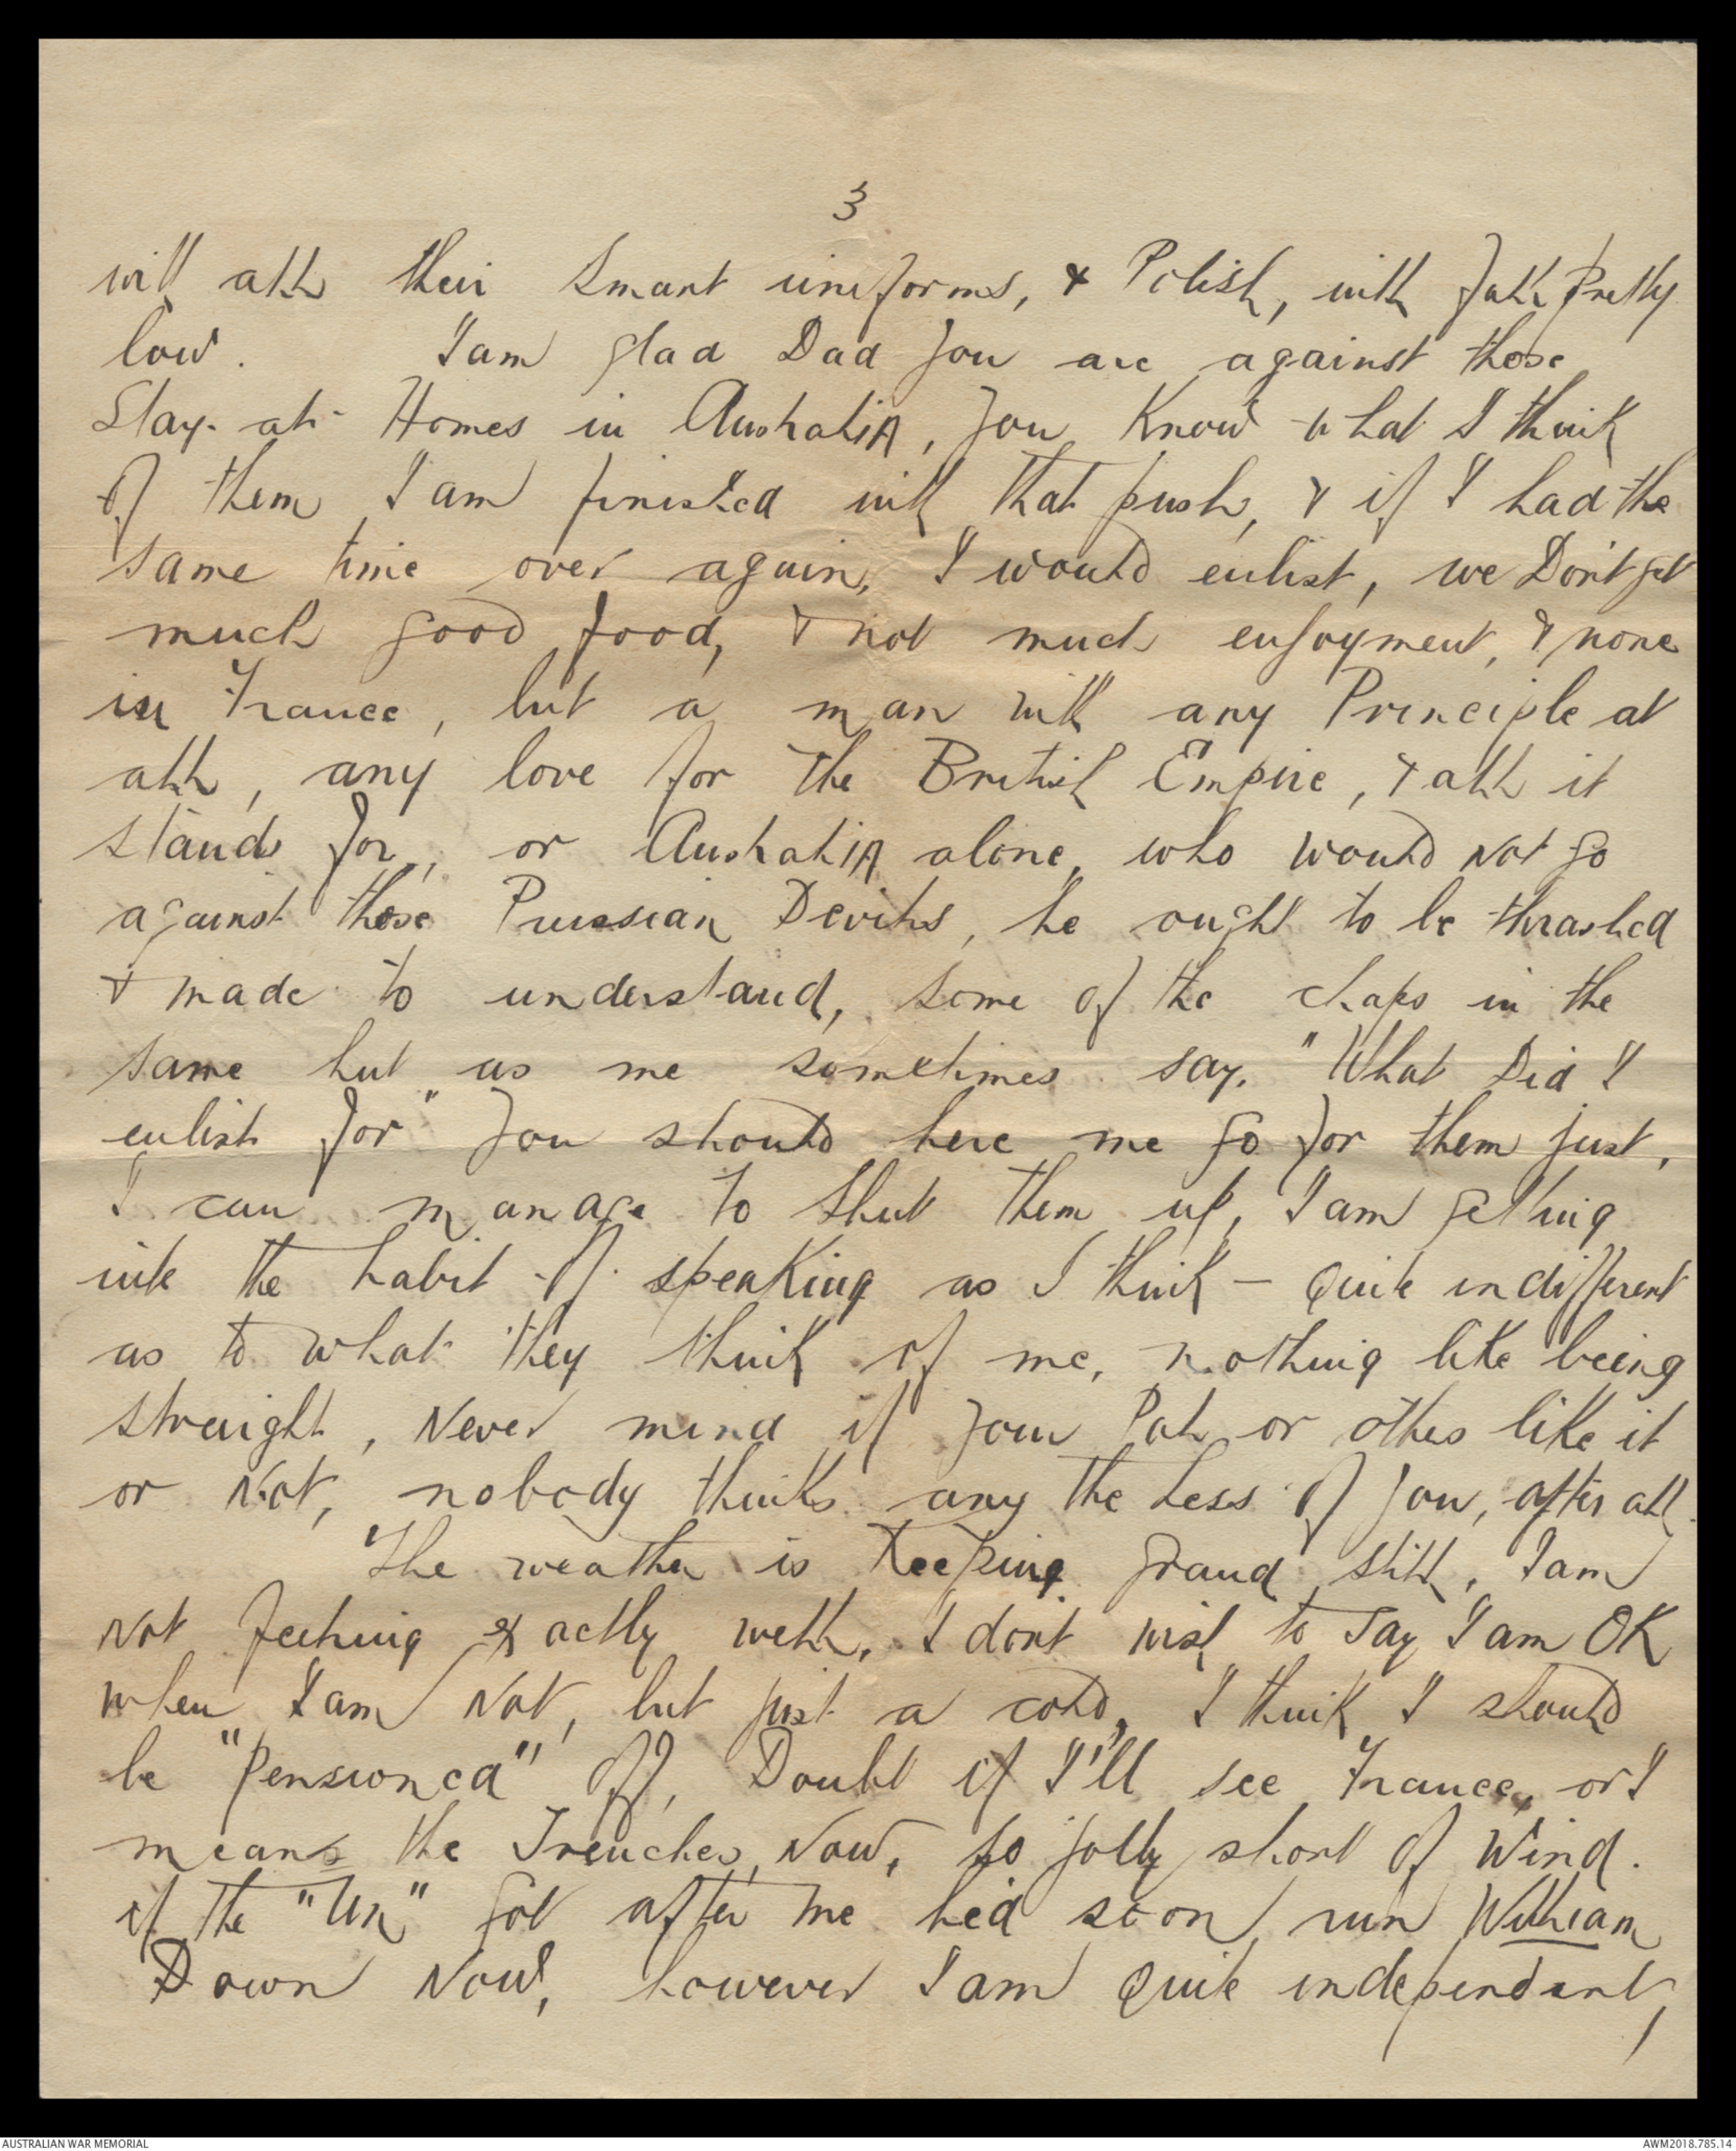 3
with all their Smart uniforms, & Polish, with fall pretty
low. I am glad Dad you are against those
Stay-at-Homes in AustraliA, you Know what I think
of them I am finished with that push, & if I had the
same time over again, I would enlist, we Don't get
much good food, & not much enjoyment, & none
in France, but a man with any Principle at
all, any love for the British Empire, & all it
stands for, or AustraliA alone, who would Not go
against those Prussian Devils, he ought to be thrashed
& made to understand, some of the chaps in the
same hut as me sometimes say. "What Did I
enlist for" you should here me go for them just,
I can manage to Shut them up, I am getting
into the habit of speaKing as I think - quite indifferent
as to what they think of me, nothing like being
straight, Never mind if your Pal or others liKe it
or Not, nobody thinks any the Less of you, after all.
The weather is Keeping grand still, I am
Not feeling exactly well, I dont wish to say I am OK
when I am Not, but just a cold, I think I should
be "pensioned" off, Doubt if I'll see France, or I
means the Trenches, Now, so jolly short of Wind.
if the "Un" got after me he'd soon run William
Down Now, however I am quite independant,
AUSTRALIAN WAR MEMORIAL
AWM2018.785.14